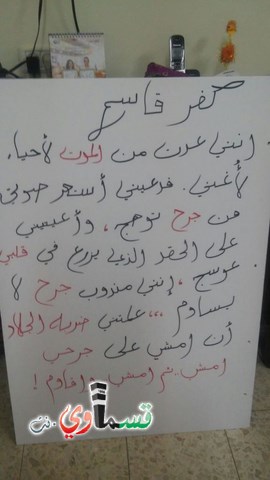 كفر قاسم
. انني عدت من الموت لأحيا،
لأغني. فدعيني أستعر صوتي
من جرح توهج، وأعينيني
على الحقد الذي يزرع في قلبي
عوسج. إنني مندوب جرح لا
يساوم ،،، علمتني ضربة الجلاد
أن امشي على جرحي
امشي ثم امشي واقاوم!
قسماوي.نت